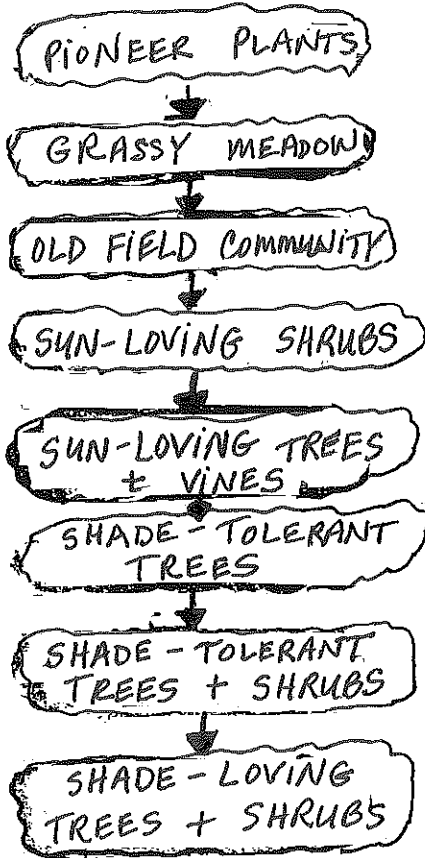 PiONEER PLANTS
GRASSY MEADOW
OLD FiELD COMMUNITY
SUN-LOViNG SHRUBS
SUN-LOViNG TREES
+ ViNES
SHADE-TOLERANT
TREES
SHADE-TOLERANT
TREES + SHRUBS
SHADE-LOViNG
TREES + SHRUBS